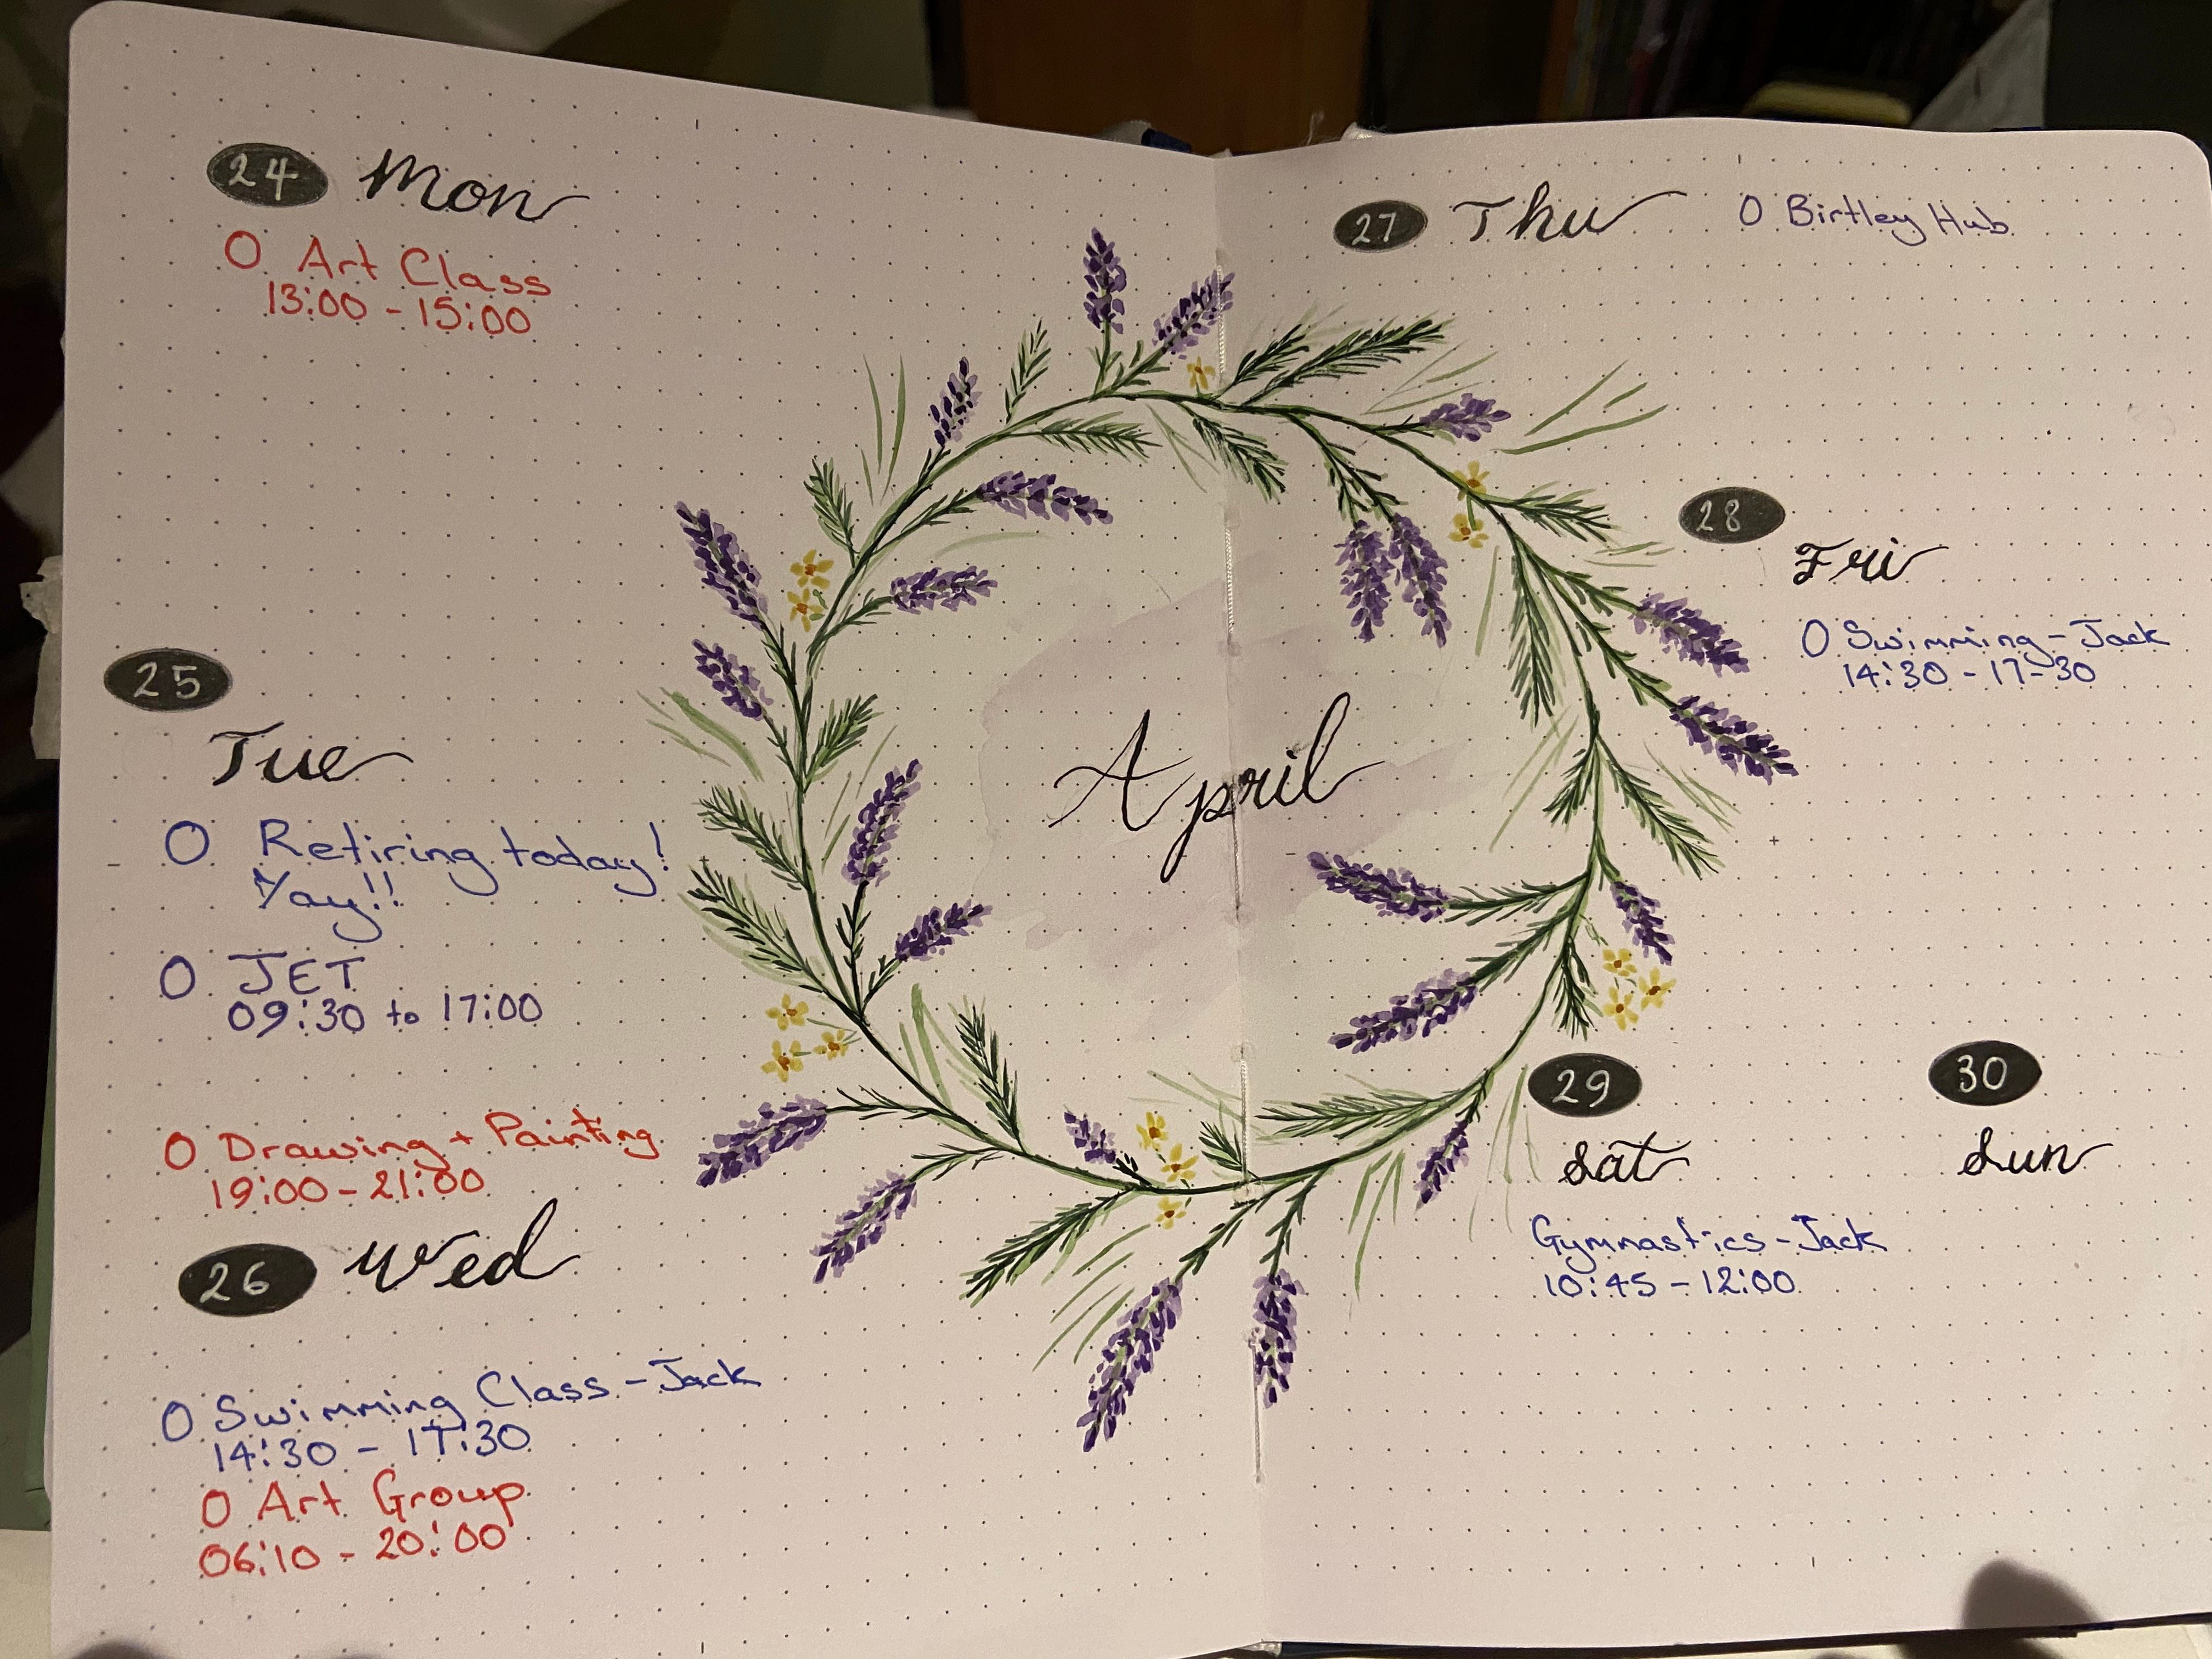 24 Mon
O Art Class
13:00 - 15:00
25
Tue
O Retiring today!
Yay!!
O JET
09:30 to 17:00
O Drawing + Painting
19:00 - 21:00
26 Wed
O Swimming Class - Jack
14:30 - 17:30
O Art Group
06:10 - 20:00
April
27 Thu O Birtley Hub
28
Fri
O Swimming - Jack
14:30 - 17-30
29
Sat
Gymnastics - Jack
10:45 - 12:00
30
Sun